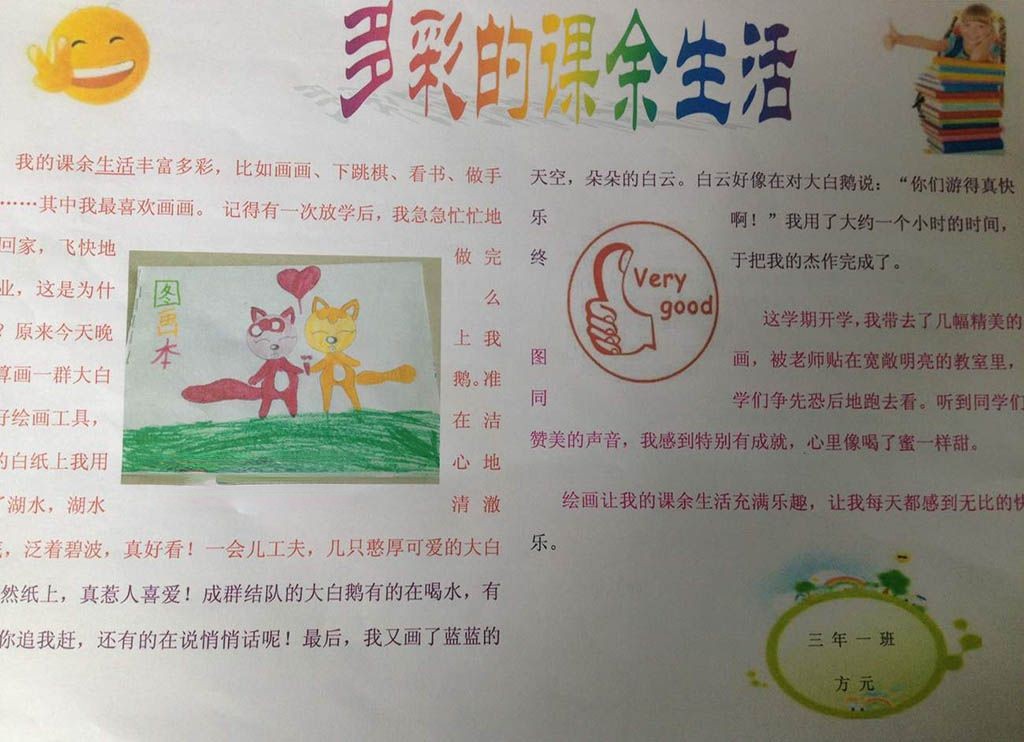 多彩的课余生活
我的课余生活丰富多彩，比如画画、下跳棋、看书、做手
……其中我最喜欢画画。 记得有一次放学后，我急急忙忙地
回家，飞快地 做 完
业，这是为什 么
？原来今天晚 上 我
算画一群大白 鹅。准
好绘画工具， 在 洁
的白纸上我用 心 地
了湖水，湖水 清 澈
，泛着碧波，真好看！一会儿工夫，几只憨厚可爱的大白
然纸上，真惹人喜爱！成群结队的大白鹅有的在喝水，有
你追我赶，还有的在说悄悄话呢！最后，我又画了蓝蓝的
图画本
天空，朵朵的白云。白云好像在对大白鹅说：“你们游得真快
乐 啊！”我用了大约一个小时的时间，
终 于把我的杰作完成了。
Very
good
这学期开学，我带去了几幅精美的
图 画，被老师贴在宽敞明亮的教室里，
同 学们争先恐后地跑去看。听到同学们
赞美的声音，我感到特别有成就，心里像喝了蜜一样甜。
绘画让我的课余生活充满乐趣，让我每天都感到无比的快
乐。
三年一班
方元